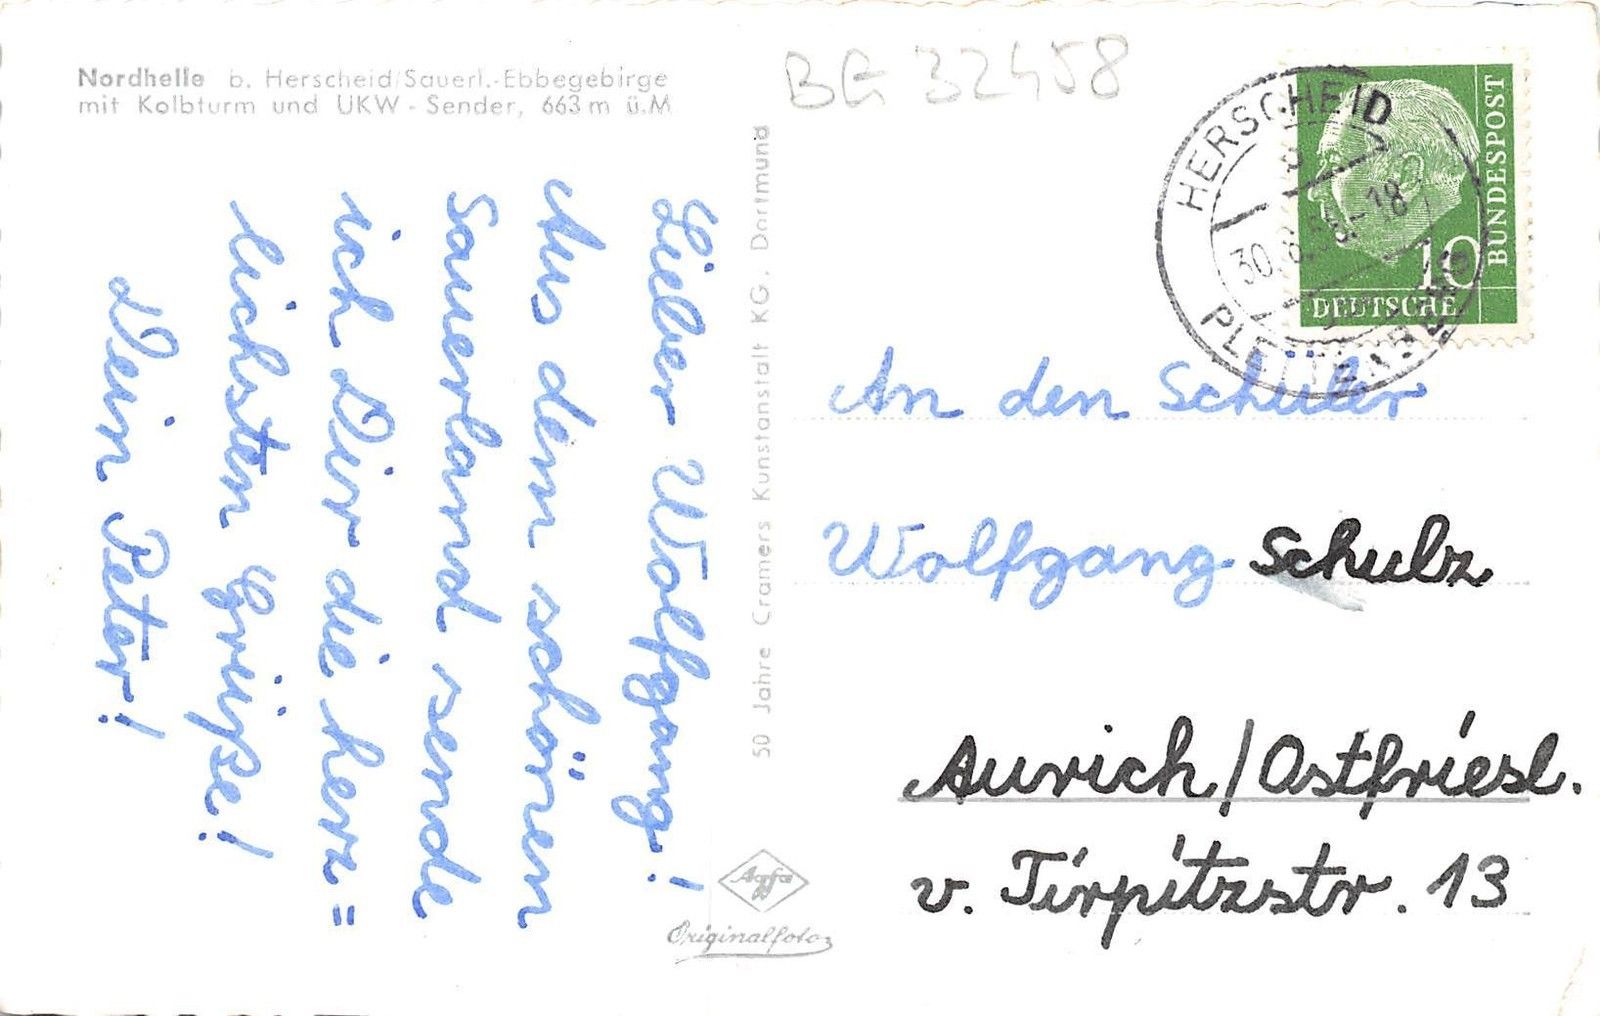 Nordhelle b. Herscheid/Sauerl.-Ebbegebirge
mit Kolbturm und UKW-Sender, 663 m ü.M
BG 32458
HERSCHEID
30.8.56.-18
PLETTENBERG
DEUTSCHE
BUNDESPOST
10
Lieber Wolfgang!
Aus dem schönen
Sauerland sende
ich Dir die herz=
lichsten Grüße!
Dein Peter!
50 Jahre Cramers Kunstanstalt KG, Dortmund
An den Schüler
Wolfgang Schulz
Aurich/Ostfriesl.
v. Tirpitzstr. 13
Agfa
Originalfoto